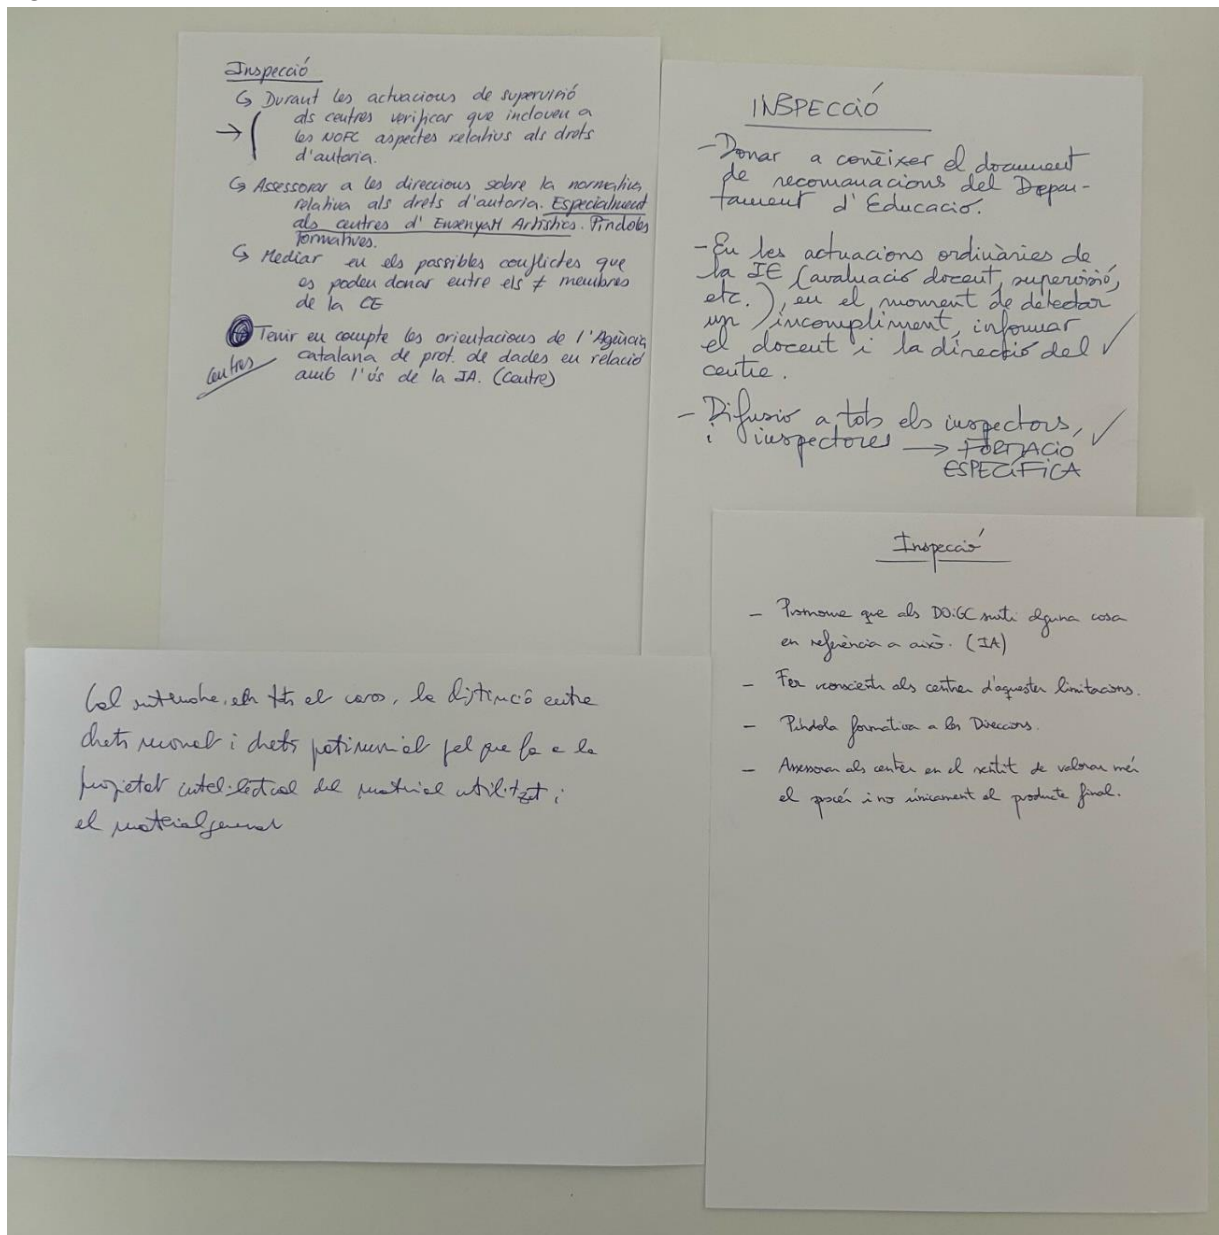 Inspecció
↳ Durant les actuacions de supervisió
als centres verificar que inclouen a
→ les NOFC aspectes relatius als drets
d'autoria.
↳ Assessorar a les direccions sobre la normativa
relativa als drets d'autoria. Especialment
als centres d'Ensenyam Artístics. Píndoles
formatives.
↳ Mediar en els possibles conflictes que
es poden donar entre els ≠ membres
de la CE
Tenir en compte les orientacions de l'Agència
catalana de prot. de dades en relació
amb l'ús de la IA. (Centre)
Centres
INSPECCIÓ
- Donar a conèixer el document
de recomanacions del Depar-
tament d'Educació.
- En les actuacions ordinàries de
la IE (avaluació docent, supervisió,
etc.), en el moment de detectar
un incompliment, informar
el docent i la direcció del ✓
centre.
- Difusió a tots els inspectors,
i inspectores → FORMACIÓ ✓
ESPECÍFICA
Inspecció
- Promoure que als DOIGC surti alguna cosa
en referència a això. (IA)
- Fer conscients als centres d'aquestes limitacions.
- Píndola formativa a les Direccions.
- Assessorar als centres en el sentit de valorar més
el procés i no únicament el producte final.
Cal en tots el casos, la distinció entre
drets morals i drets patrimonials pel que fa a la
propietat intel·lectual del material utilitzat i
el material generat